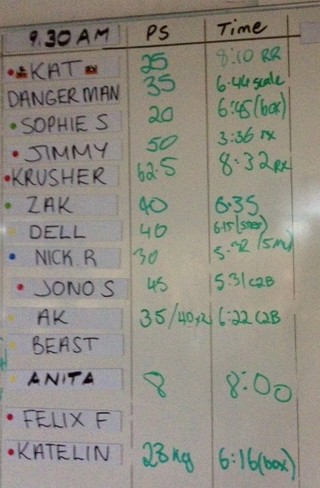 9.30 AM PS Time
KAT 25 8:10 RR
DANGERMAN 35 6:44 scale
SOPHIE S 20 6:45 (box)
JIMMY 50 3:36 rx
KRUSHER 62.5 8:32 rx
ZAK 40 6:35
DELL 40 6:15
NICK.R 30
JONO S 45 5:31 C2B
AK 35/40x2 6:22 C2B
BEAST
ANITA 8 8:00
FELIX F
KATELIN 23kg 6:16 (box)